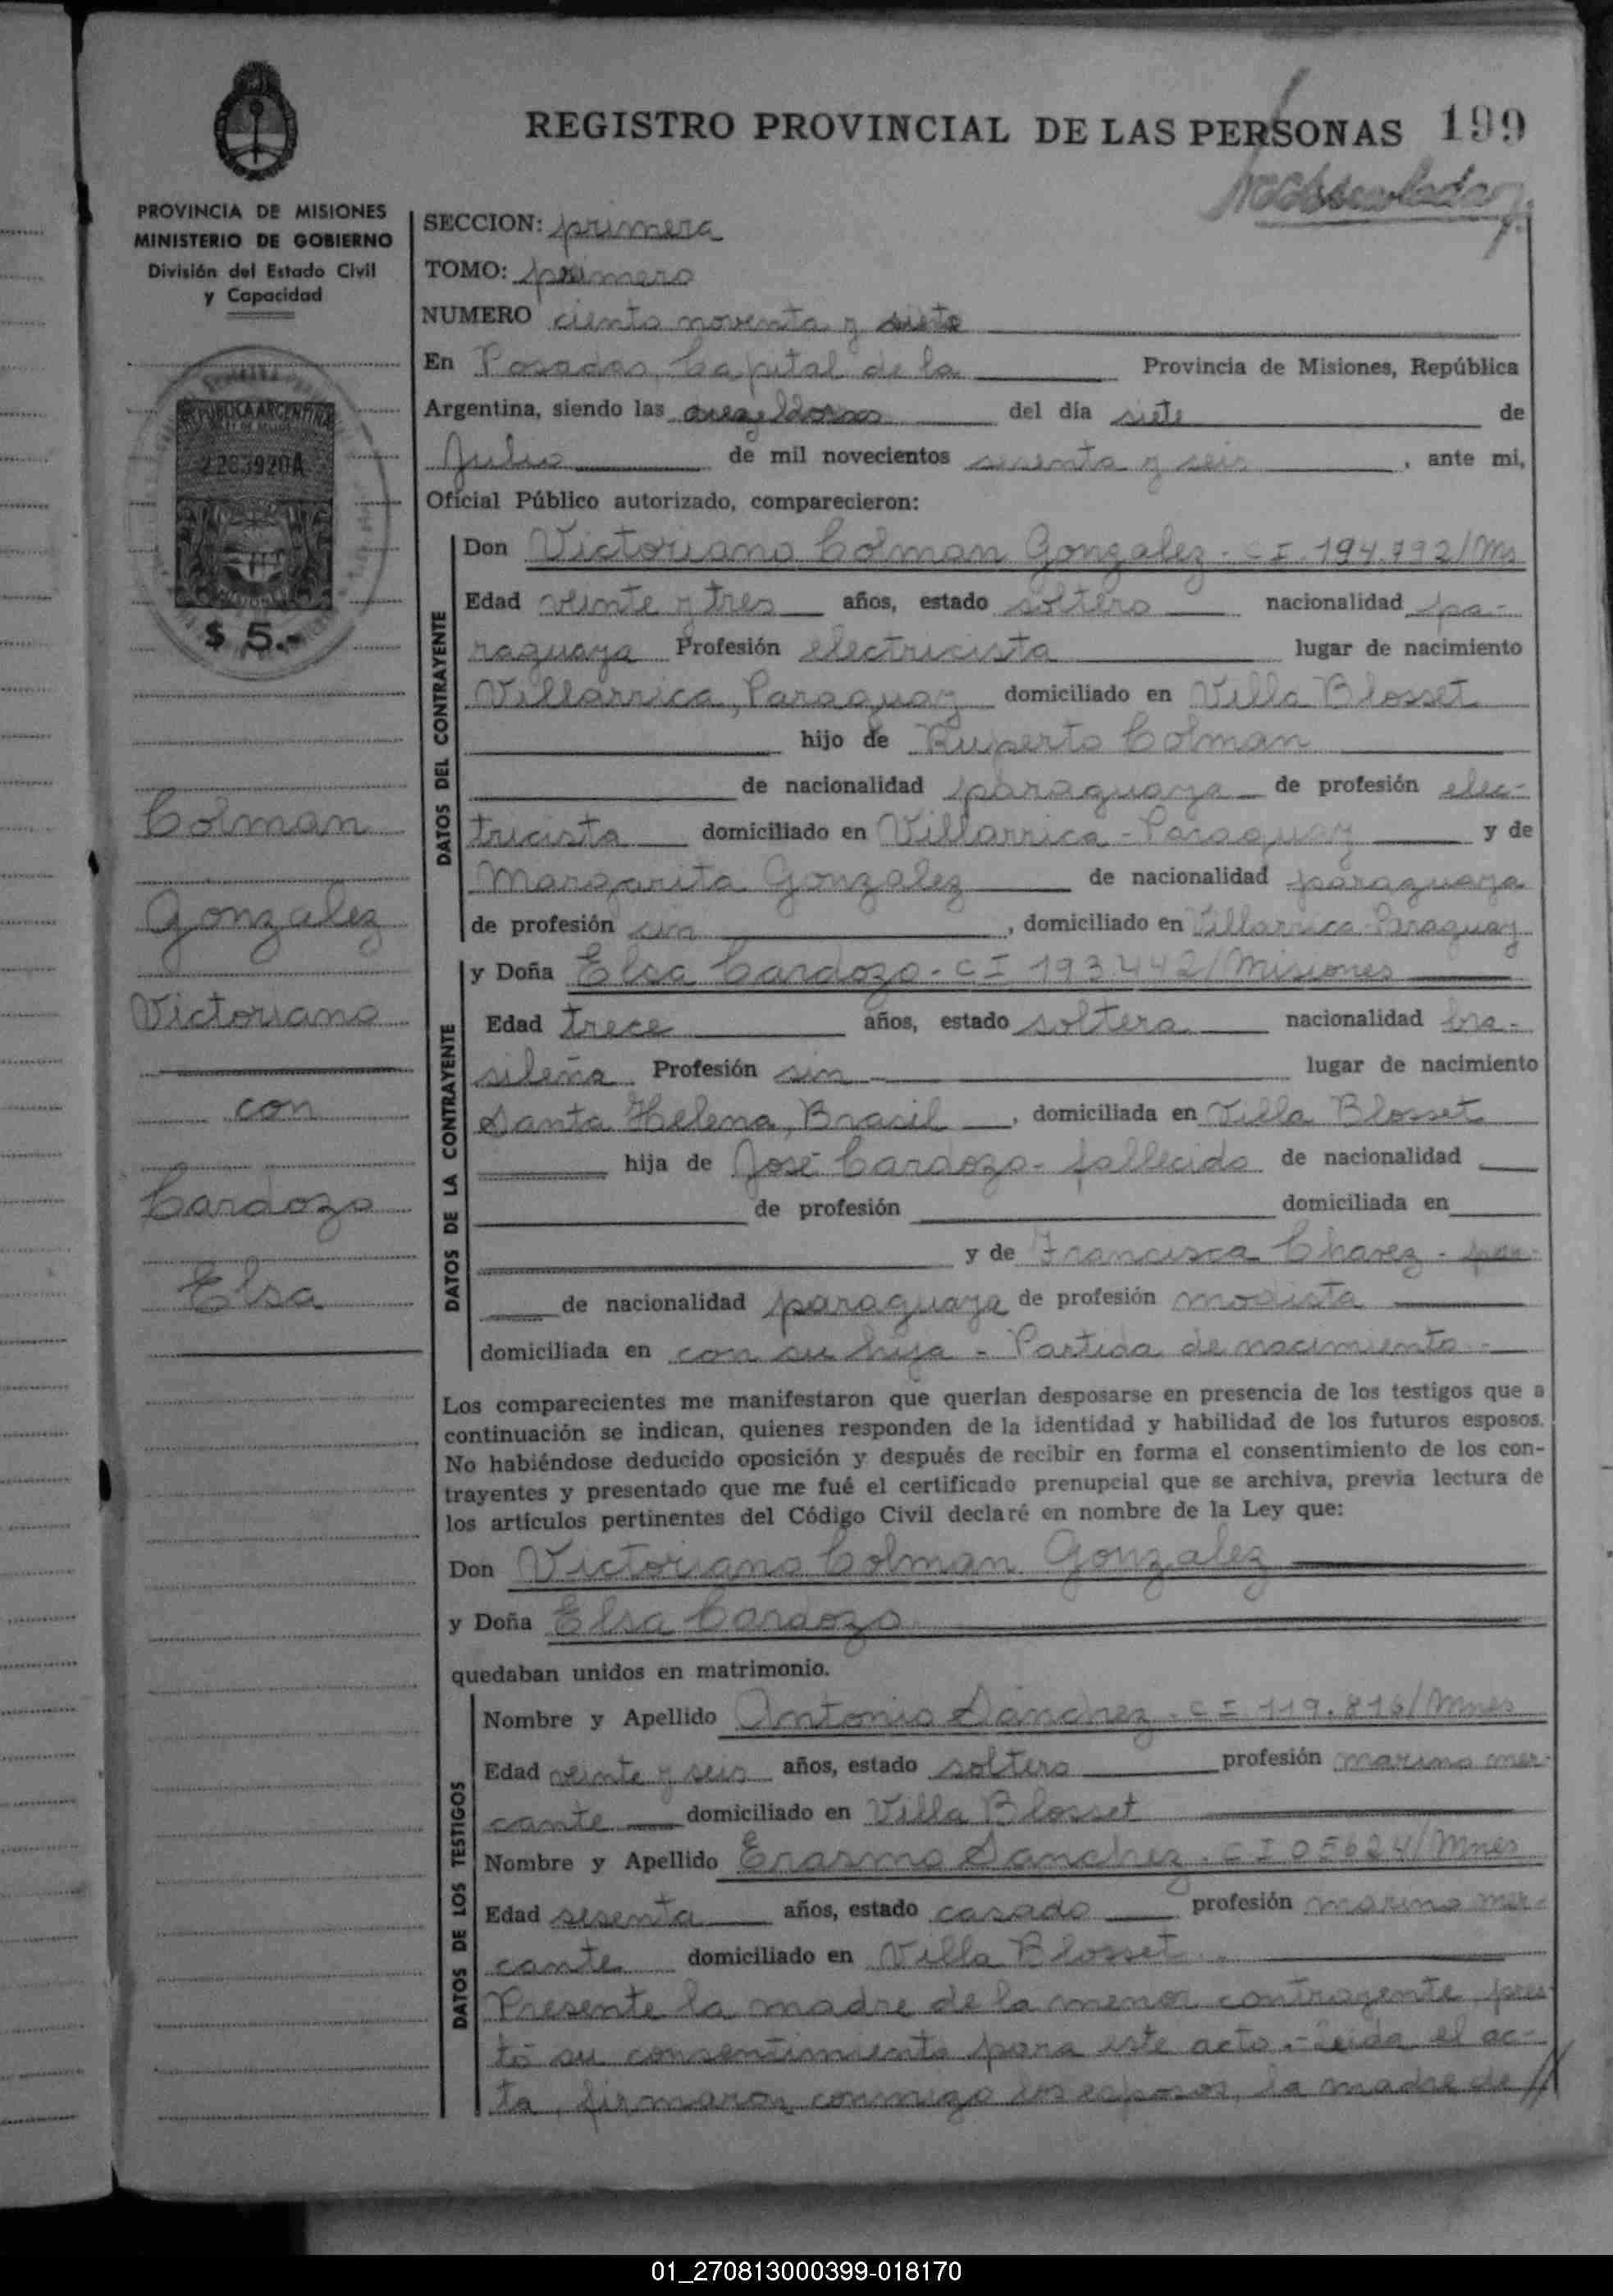 REGISTRO PROVINCIAL DE LAS PERSONAS 199
PROVINCIA DE MISIONES
MINISTERIO DE GOBIERNO
División del Estado Civil
y Capacidad
REPUBLICA ARGENTINA
2203920A
$ 5.-
Colman
Gonzalez
Victoriano
con
Cardozo
Elsa
SECCION: primera
TOMO: primero
NUMERO ciento noventa y siete
En Posadas Capital de la Provincia de Misiones, República
Argentina, siendo las del día siete de
Julio de mil novecientos sesenta y seis, ante mi,
Oficial Público autorizado, comparecieron:
DATOS DEL CONTRAYENTE
Don Victoriano Colman Gonzalez - C I - 194.792/Ms
Edad veinte y tres años, estado soltero nacionalidad pa-
raguaya Profesión electricista lugar de nacimiento
Villarrica, Paraguay domiciliado en Villa Blosset
hijo de Ruperto Colman
de nacionalidad paraguaya de profesión elec-
tricista domiciliado en Villarrica - Paraguay y de
Margarita Gonzalez de nacionalidad paraguaya
de profesión sin, domiciliado en Villarrica-Paraguay
DATOS DE LA CONTRAYENTE
y Doña Elsa Cardozo - C I - 193442/Misiones
Edad trece años, estado soltera nacionalidad bra-
sileña Profesión sin lugar de nacimiento
Santa Helena, Brasil, domiciliada en Villa Blosset
hija de José Cardozo - fallecido de nacionalidad
de profesión domiciliada en
y de Francisca Chavez -
de nacionalidad paraguaya de profesión modista
domiciliada en con su hija - Partida de nacimiento -
Los comparecientes me manifestaron que querían desposarse en presencia de los testigos que a
continuación se indican, quienes responden de la identidad y habilidad de los futuros esposos.
No habiéndose deducido oposición y después de recibir en forma el consentimiento de los con-
trayentes y presentado que me fué el certificado prenupcial que se archiva, previa lectura de
los artículos pertinentes del Código Civil declaré en nombre de la Ley que:
Don Victoriano Colman Gonzalez
y Doña Elsa Cardozo
quedaban unidos en matrimonio.
DATOS DE LOS TESTIGOS
Nombre y Apellido Antonio Sánchez - C I - 119.816/Mnes
Edad veinte y seis años, estado soltero profesión marino mer-
cante domiciliado en Villa Blosset
Nombre y Apellido Erasmo Sanchez - C I 05624/Mnes
Edad sesenta años, estado casado profesión marino mer-
cante domiciliado en Villa Blosset
Presente la madre de la menor contrayente pres-
tó su consentimiento para este acto.- Leida el ac-
ta, firmaron conmigo los esposos, la madre de //
01_270813000399-018170